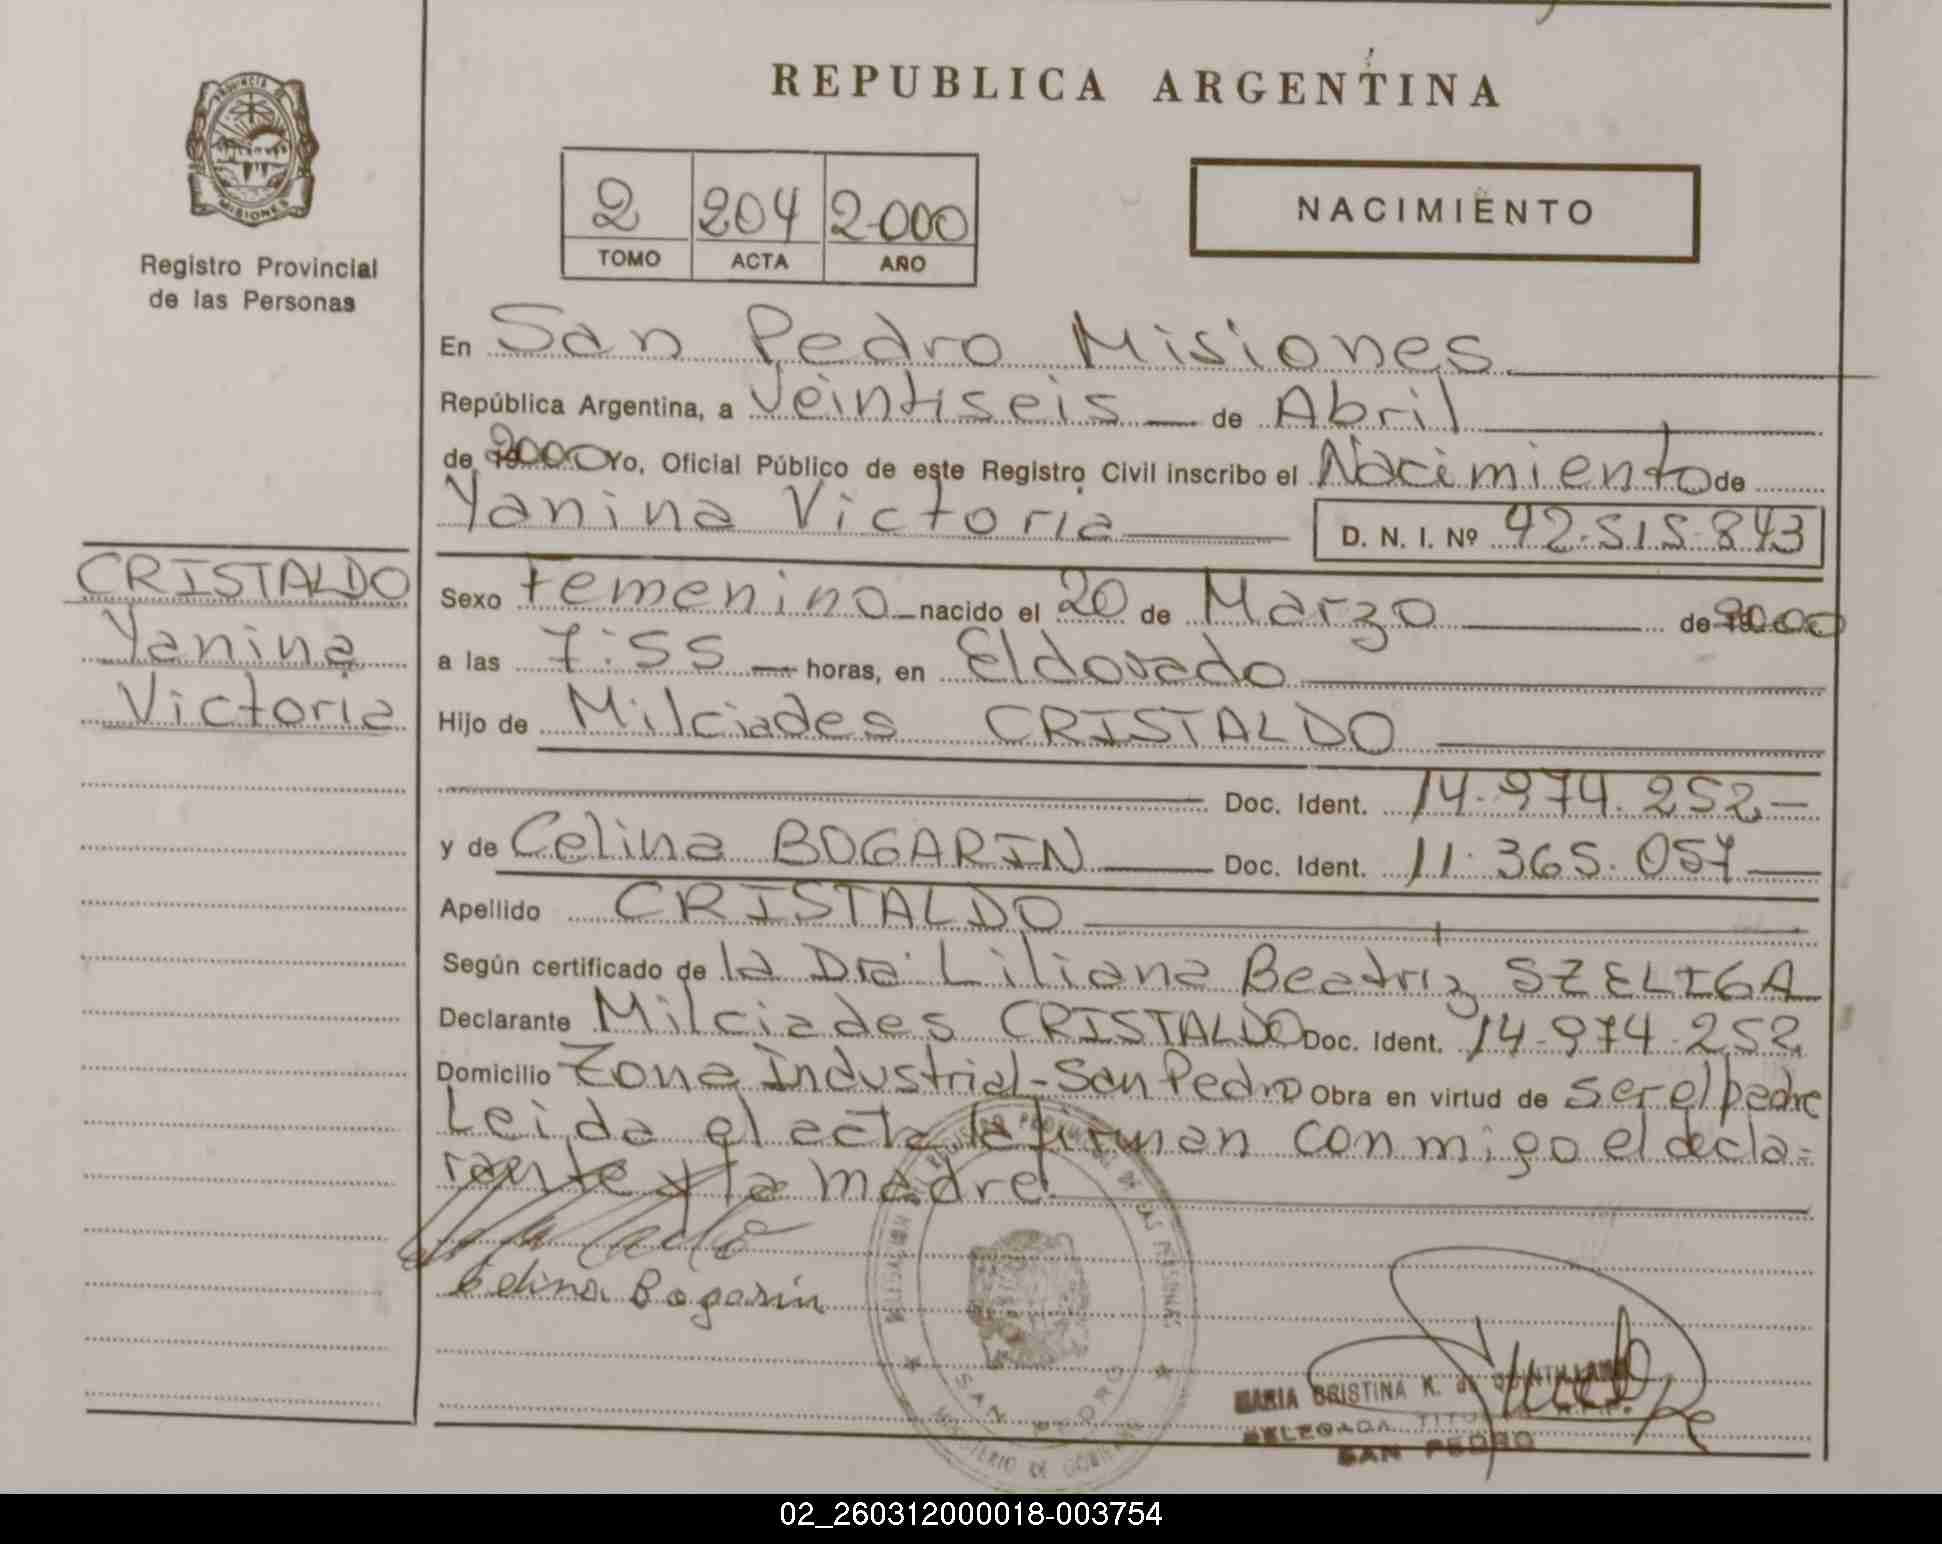 REPUBLICA ARGENTINA
PROVINCIA DE
MISIONES
Registro Provincial
de las Personas
2 204 2000
TOMO ACTA AÑO
NACIMIENTO
En San Pedro Misiones
República Argentina, a Veintiseis de Abril
de 2000 Yo, Oficial Público de este Registro Civil inscribo el Nacimiento de
Yanina Victoria D. N. I. Nº 42.515.843
CRISTALDO
Yanina
Victoria
Sexo Femenino nacido el 20 de Marzo de 2000
a las 7:55 horas, en Eldorado
Hijo de Milciades CRISTALDO
Doc. Ident. 14.974.252
y de Celina BOGARIN Doc. Ident. 11.365.057
Apellido CRISTALDO
Según certificado de la Dra. Liliana Beatriz SZELIGA
Declarante Milciades CRISTALDO Doc. Ident. 14.974.252
Domicilio Zona Industrial-San Pedro Obra en virtud de ser el padre
Leida el acta la firman conmigo el decla=
rante y la madre.
Celina Bogarin
SAN PEDRO
MINISTERIO DE GOBIERNO
MARIA CRISTINA K. de
DELEGADA TITULAR
SAN PEDRO
02_260312000018-003754